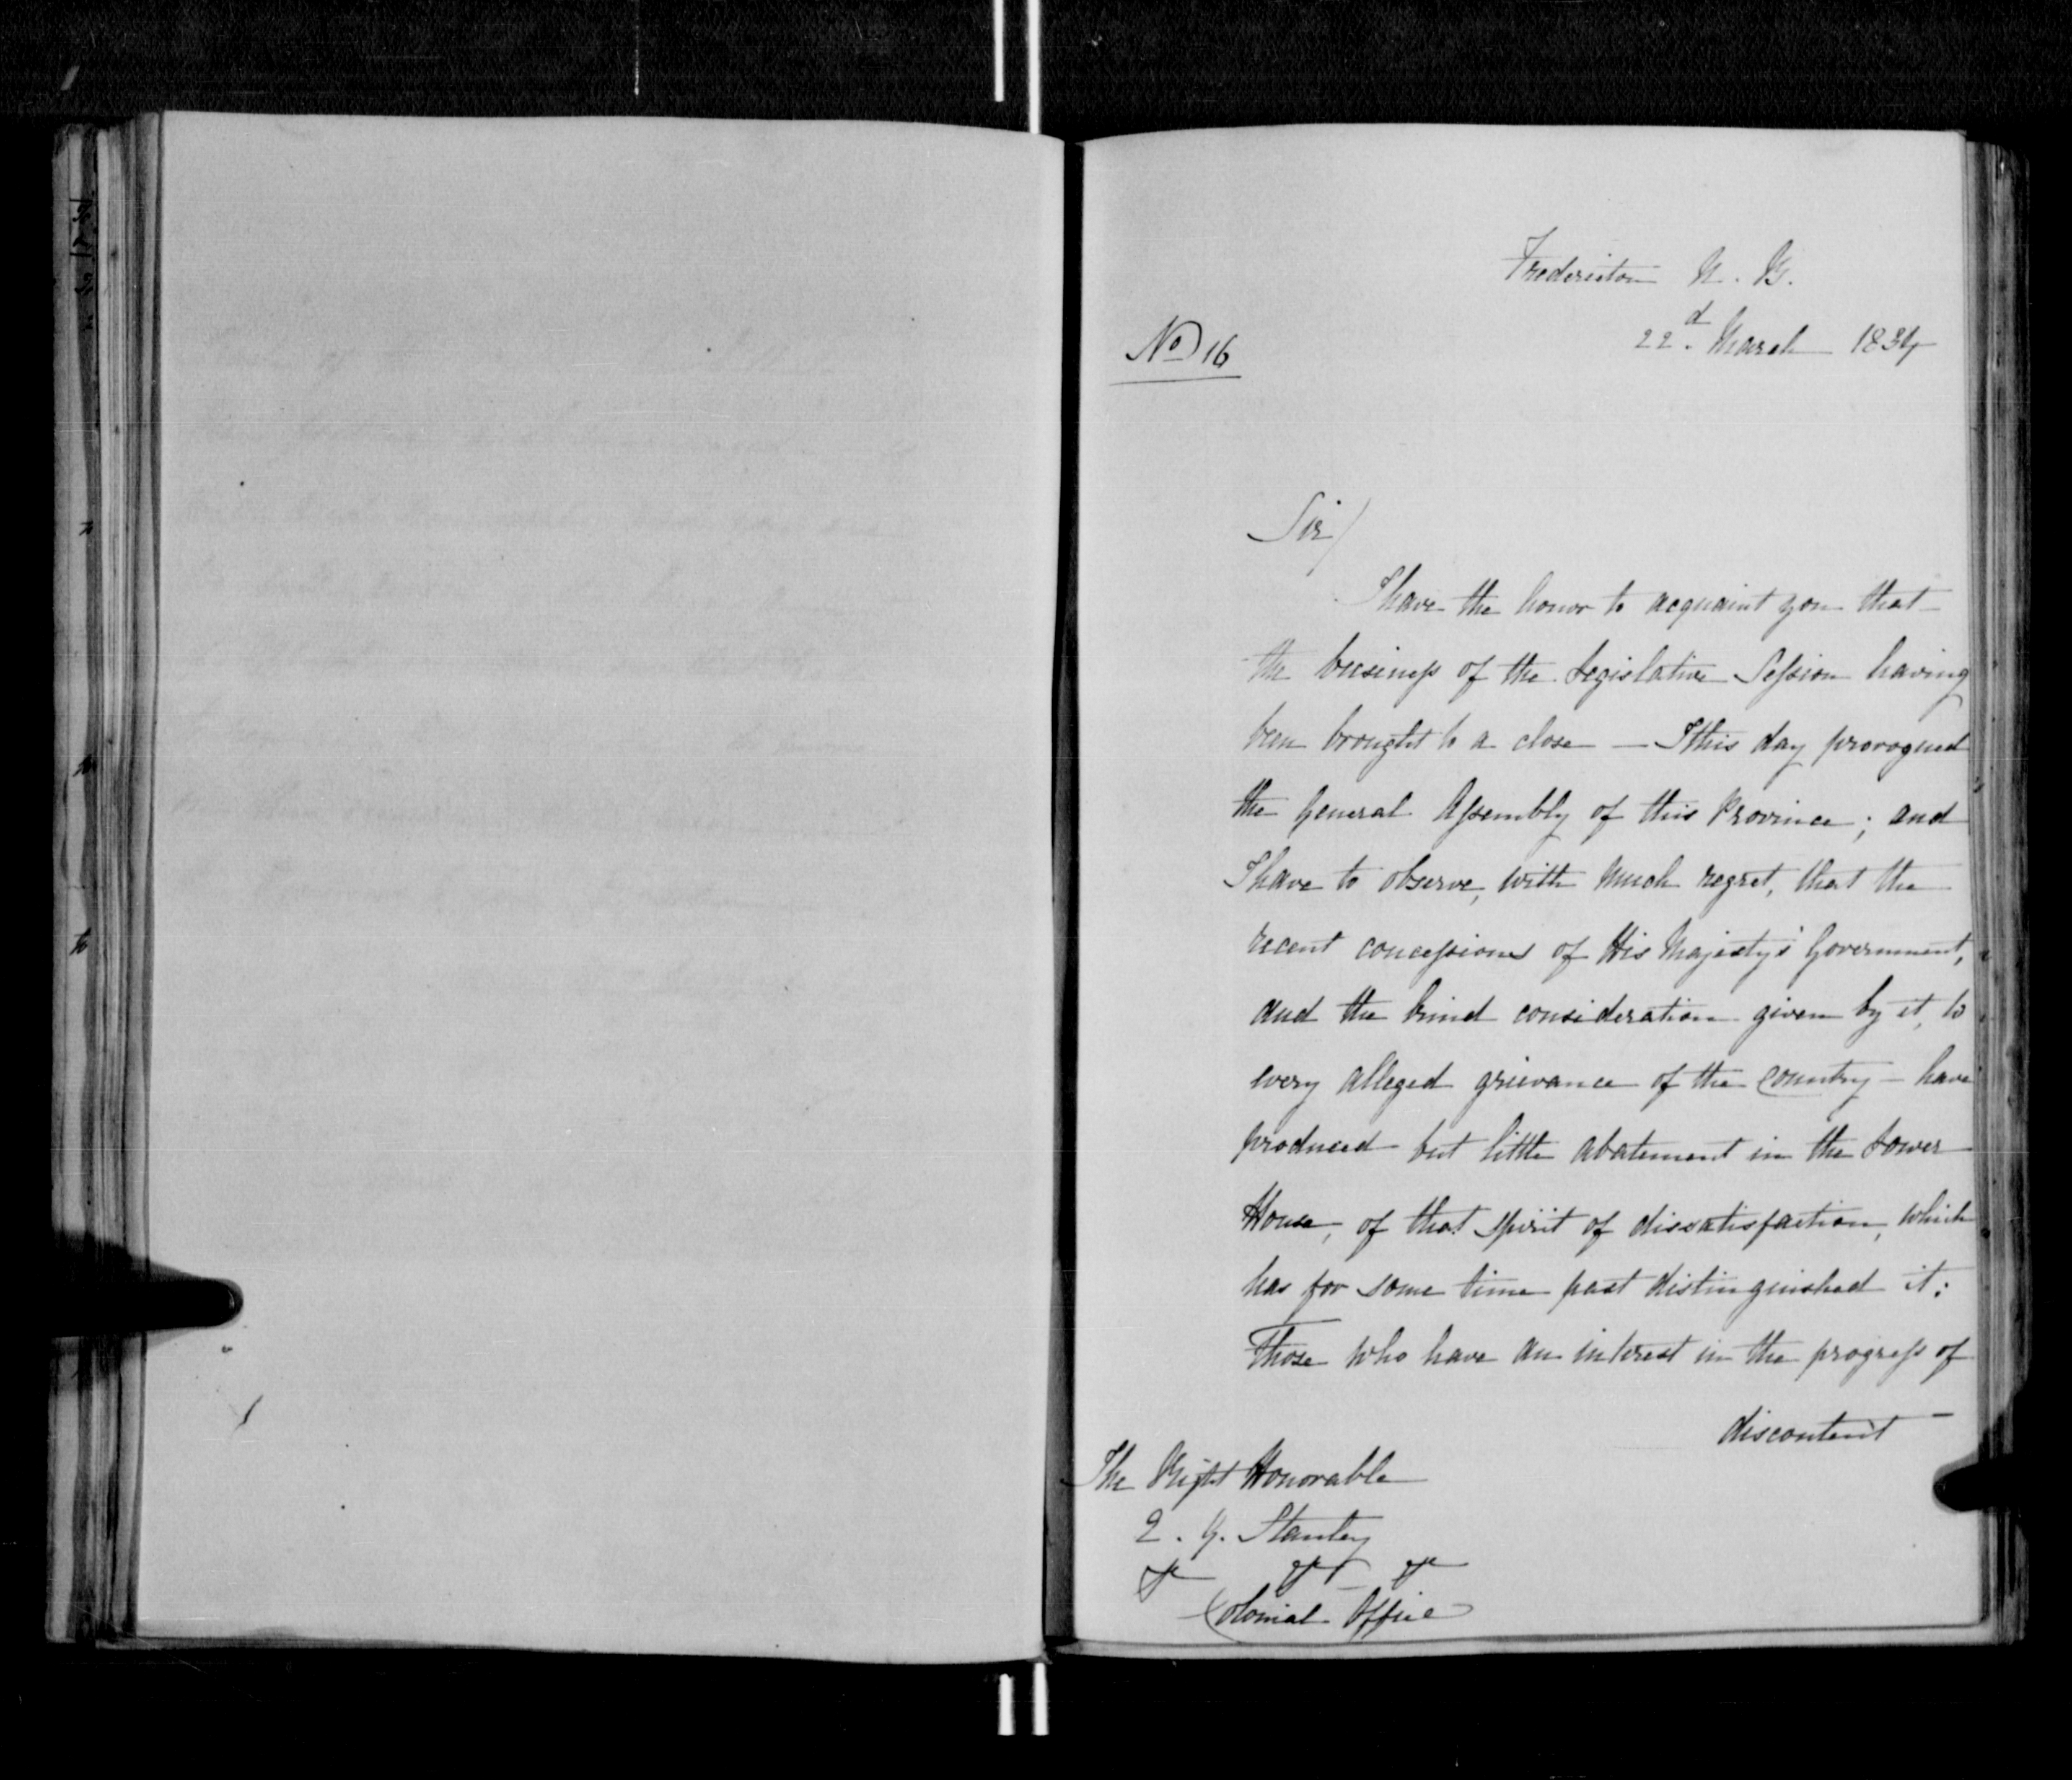 Fredericton N. B.
22d. March 1834
No 16
Sir/
I have the honor to acquaint you that
the business of the Legislative Session having
been brought to a close — I this day prorogued
the General Assembly of this Province; and
I have to observe, with much regret, that the
recent concessions of His Majesty's Government,
and the kind consideration given by it, to
every alleged grievance of the Country — have
produced but little abatement in the Lower
House, of that spirit of dissatisfaction, which
has for some time past distinguished it:
Those who have an interest in the progress of
discontent
The Right Honorable
E. G. Stanley
Colonial Office